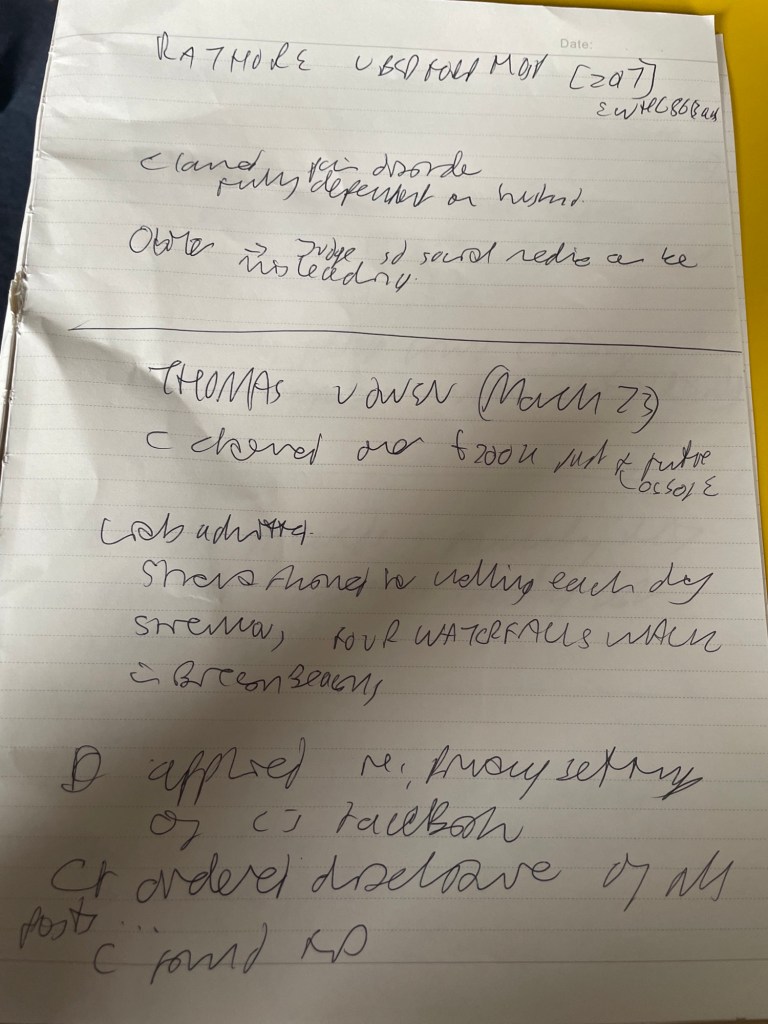 Date:
RATHORE v BEDFORD MOR [2017]
EWHC 868
C claimed pain disorder
fully dependent on husband.
Obiter → Judge sd social media can be
misleading.
THOMAS v OWEN (March 23)
C claimed over £200k past & future
LOSS OF E
Liab admitted.
walking each day
FOUR WATERFALLS WALK
in Brecon Beacons
D applied re: privacy settings
of C's FaceBook
Ct ordered disclosure of all
posts ...
C found FD